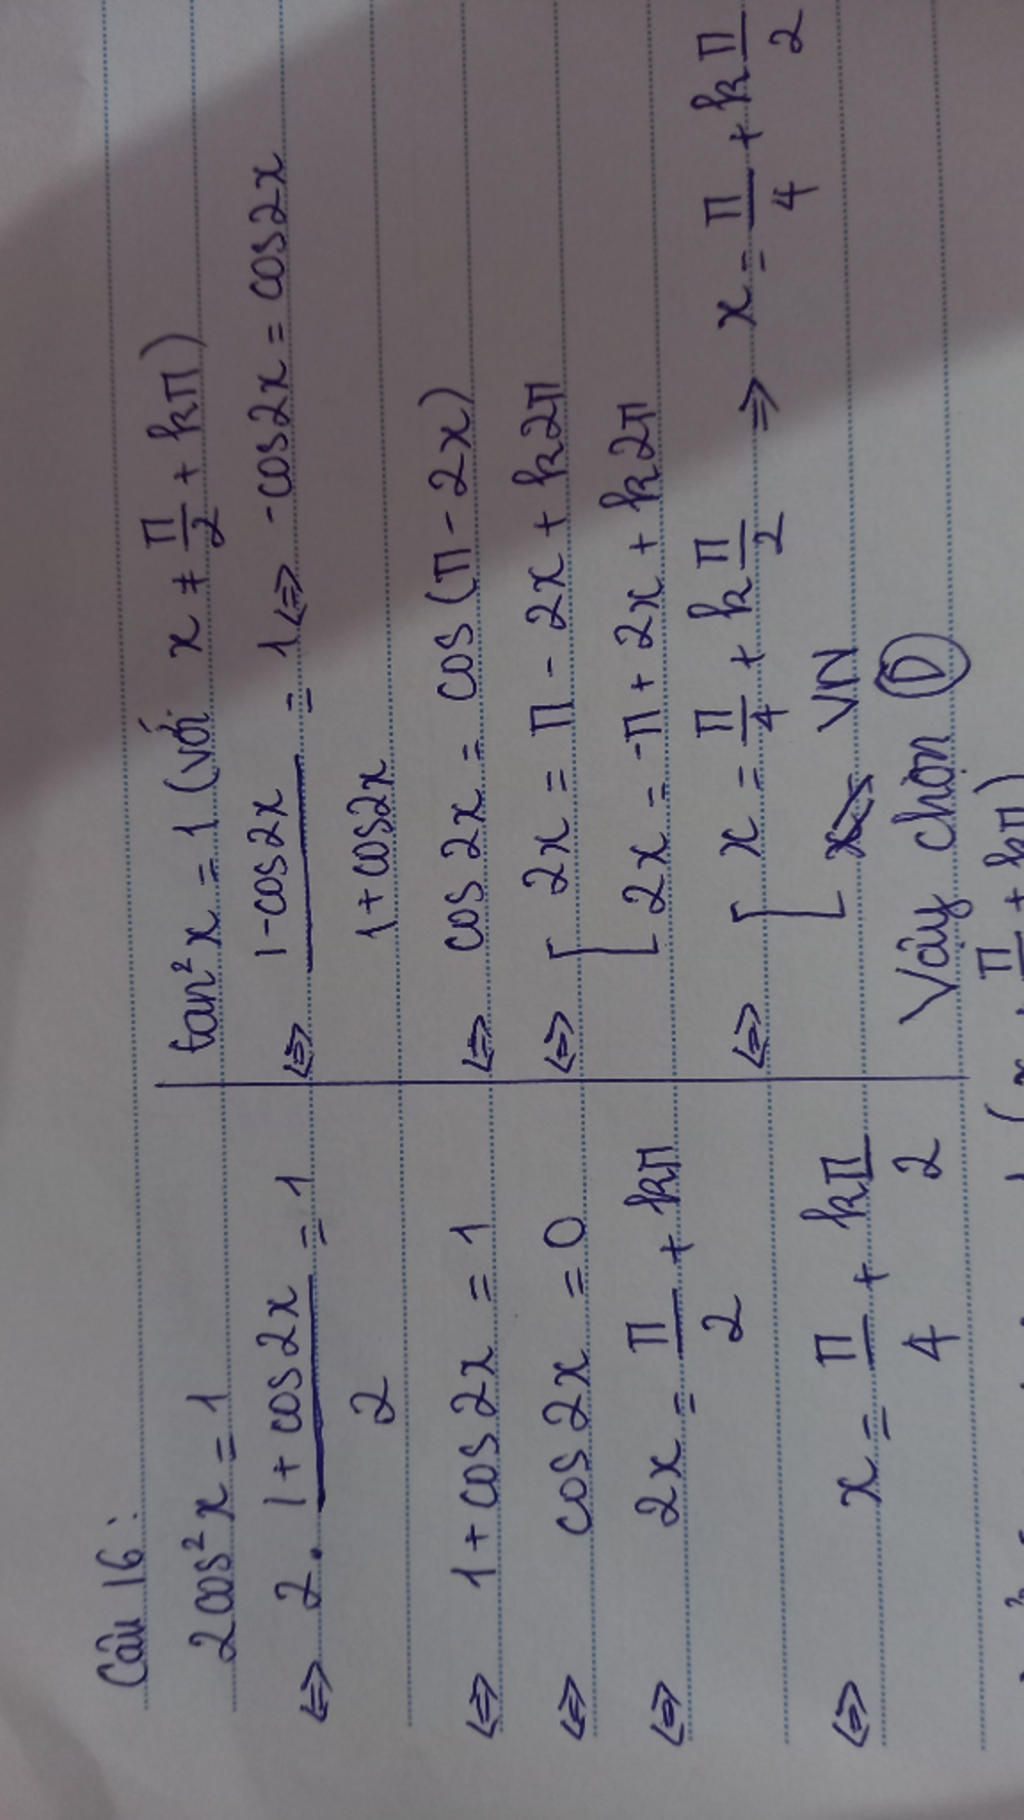 Câu 16:
2cos²x = 1
⇔ 2. (1 + cos2x)/2 = 1
⇔ 1 + cos2x = 1
⇔ cos2x = 0
⇔ 2x = π/2 + kπ
⇔ x = π/4 + kπ/2
tan²x = 1 (với x ≠ π/2 + kπ)
⇔ (1-cos2x)/(1+cos2x) = 1 ⇔ -cos2x = cos2x
⇔ cos2x = cos(π - 2x)
⇔ [ 2x = π - 2x + k2π
2x = -π + 2x + k2π
⇔ [ x = π/4 + kπ/2 ⇒ x = π/4 + kπ/2
VN
Vậy chọn D
π + kπ)